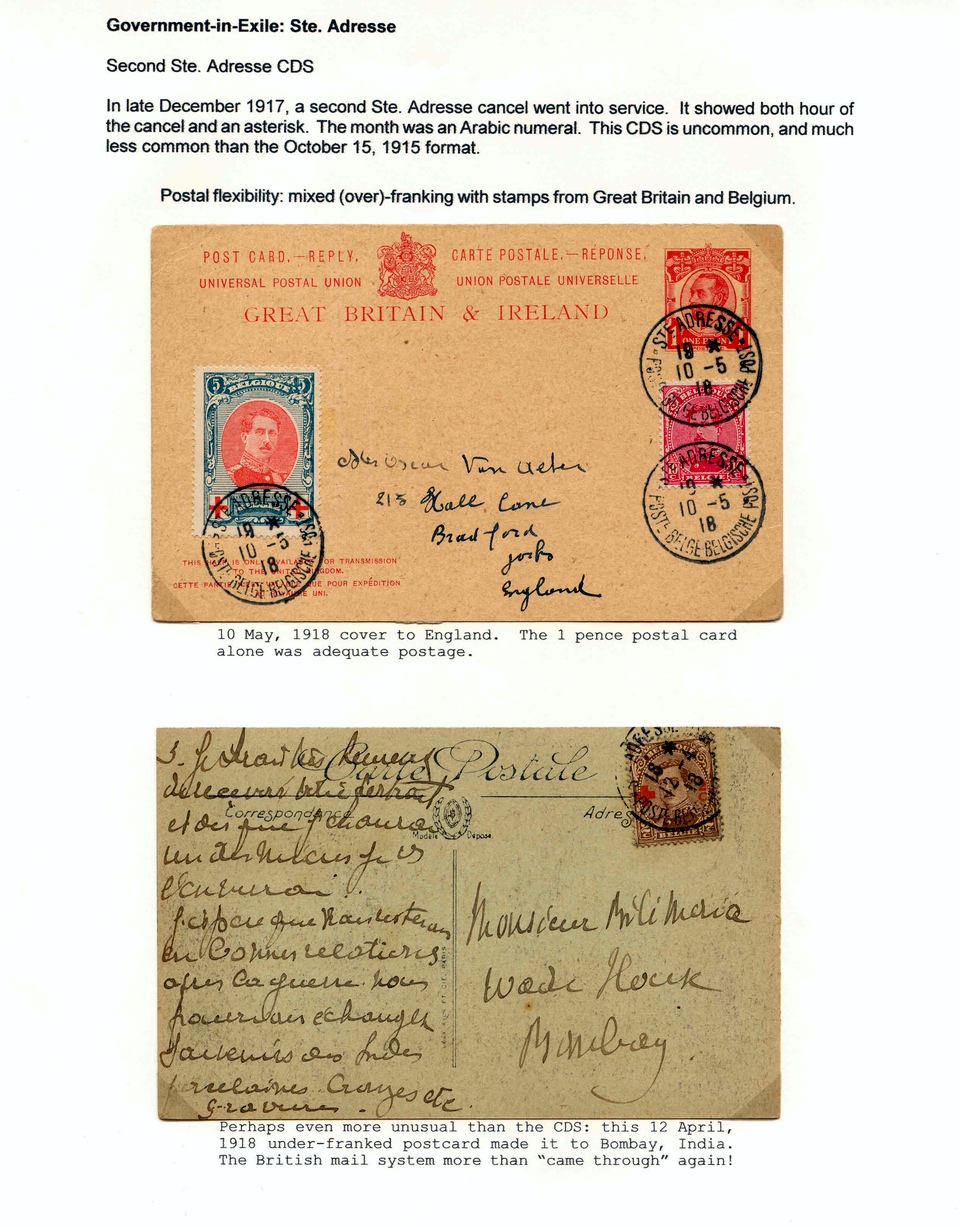 Government-in-Exile: Ste. Adresse
Second Ste. Adresse CDS
In late December 1917, a second Ste. Adresse cancel went into service. It showed both hour of
the cancel and an asterisk. The month was an Arabic numeral. This CDS is uncommon, and much
less common than the October 15, 1915 format.
Postal flexibility: mixed (over)-franking with stamps from Great Britain and Belgium.
POST CARD.—REPLY. CARTE POSTALE.—RÉPONSE.
UNIVERSAL POSTAL UNION UNION POSTALE UNIVERSELLE
GREAT BRITAIN & IRELAND
ONE PENNY
STE ADRESSE
19 *
10 -5
18
POSTE BELGE-BELGISCHE POST
5 BELGIQUE 5
STE ADRESSE
19 *
10 -5
18
POSTE BELGE-BELGISCHE POST
BELGIË
STE ADRESSE
19 *
10 -5
18
POSTE BELGE-BELGISCHE POST
Oscar Van
215 Hall Lane
Bradford
Yorks
England
THIS HALF IS ONLY AVAILABLE FOR TRANSMISSION
TO THE UNITED KINGDOM.
CETTE PARTIE QUE POUR EXPÉDITION
ROYAUME UNI.
10 May, 1918 cover to England. The 1 pence postal card
alone was adequate postage.
Carte Postale
Correspondance
Modèle Déposé
Adresse
ADRESSE
18 *
12 -4
18
POSTE BELGE
BELGIË
3. Je
de recevoir
et dès que j'
un de
en bonnes relations
après la guerre nous
pourrions échanger
souvenirs des Indes
porcelaines etc.
gravures
Monsieur
Wade
Bombay
Perhaps even more unusual than the CDS: this 12 April,
1918 under-franked postcard made it to Bombay, India.
The British mail system more than “came through” again!